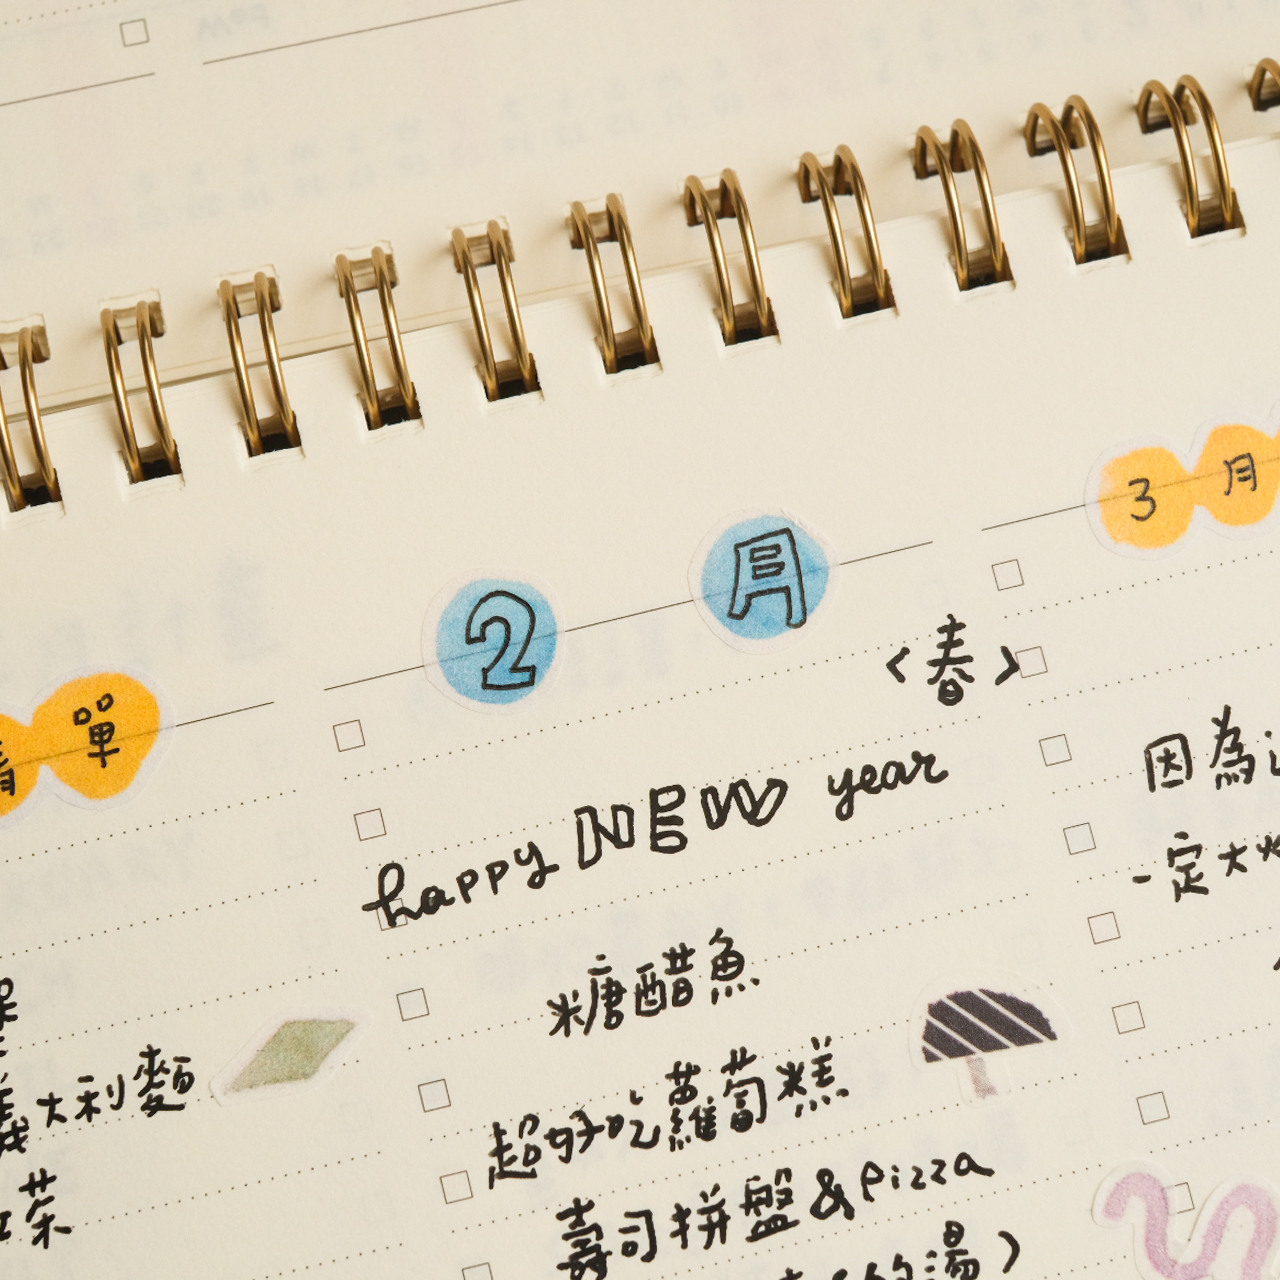 單
大利麵
茶
2月
<春>
happy NEW year
糖醋魚
超好吃蘿蔔糕
壽司拼盤&pizza
的湯)
3月
因為
一定大